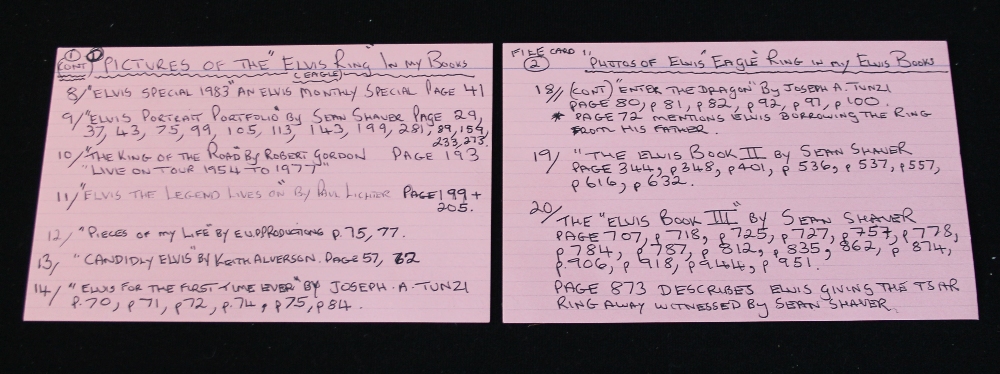 1
CONT 1 PICTURES OF THE "ELVIS RING" IN MY BOOKS
(EAGLE)
8/ "ELVIS SPECIAL 1983" AN ELVIS MONTHLY SPECIAL PAGE 41
9/ "ELVIS PORTRAIT PORTFOLIO" BY SEAN SHAVER PAGE 29,
37, 43, 75, 99, 105, 113, 143, 199, 281, 89, 159,
233, 273.
10/ "THE KING OF THE ROAD" BY ROBERT GORDON PAGE 193
"LIVE ON TOUR 1954 TO 1977"
11/ "ELVIS THE LEGEND LIVES ON" BY PAUL LICHTER PAGE 199 +
205.
12/ "PIECES OF MY LIFE" BY E.U.PRODUCTIONS p.75, 77.
13/ "CANDIDLY ELVIS" BY KEITH ALVERSON. PAGE 57, 62
14/ "ELVIS FOR THE FIRST TIME EVER" BY JOSEPH.A.TUNZI
P.70, p71, p72, p.74, p75, p84.
FILE CARD 1,
2 PHOTOS OF ELVIS "EAGLE" RING IN MY ELVIS BOOKS
18/ (CONT) "ENTER THE DRAGON" BY JOSEPH A. TUNZI
PAGE 80, p81, p82, p92, p97, p100.
* PAGE 72 MENTIONS ELVIS BORROWING THE RING
FROM HIS FATHER.
19/ "THE ELVIS BOOK II" BY SEAN SHAVER
PAGE 344, p348, p401, p536, p537, p557,
p616, p632.
20/ THE "ELVIS BOOK III" BY SEAN SHAVER
PAGE 707, p718, p725, p727, p757, p778,
p784, p787, p812, p835, 862, p874,
p.906, p918, p944, p951.
PAGE 873 DESCRIBES ELVIS GIVING THE TSAR
RING AWAY WITNESSED BY SEAN SHAVER.